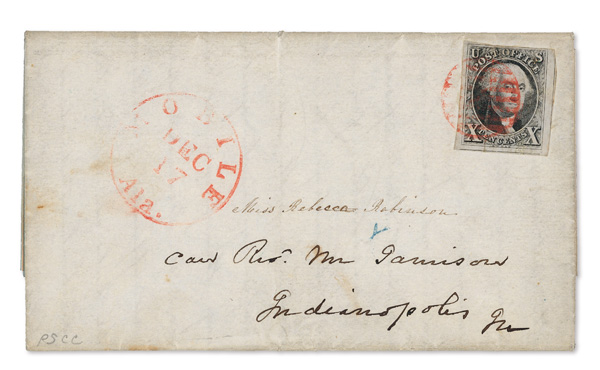 U S
POST OFFICE
X TEN CENTS X
MOBILE
DEC
17
Ala.
Miss Rebecca Robinson
care Revd. Mr Jamison
Indianopolis In
PSCC